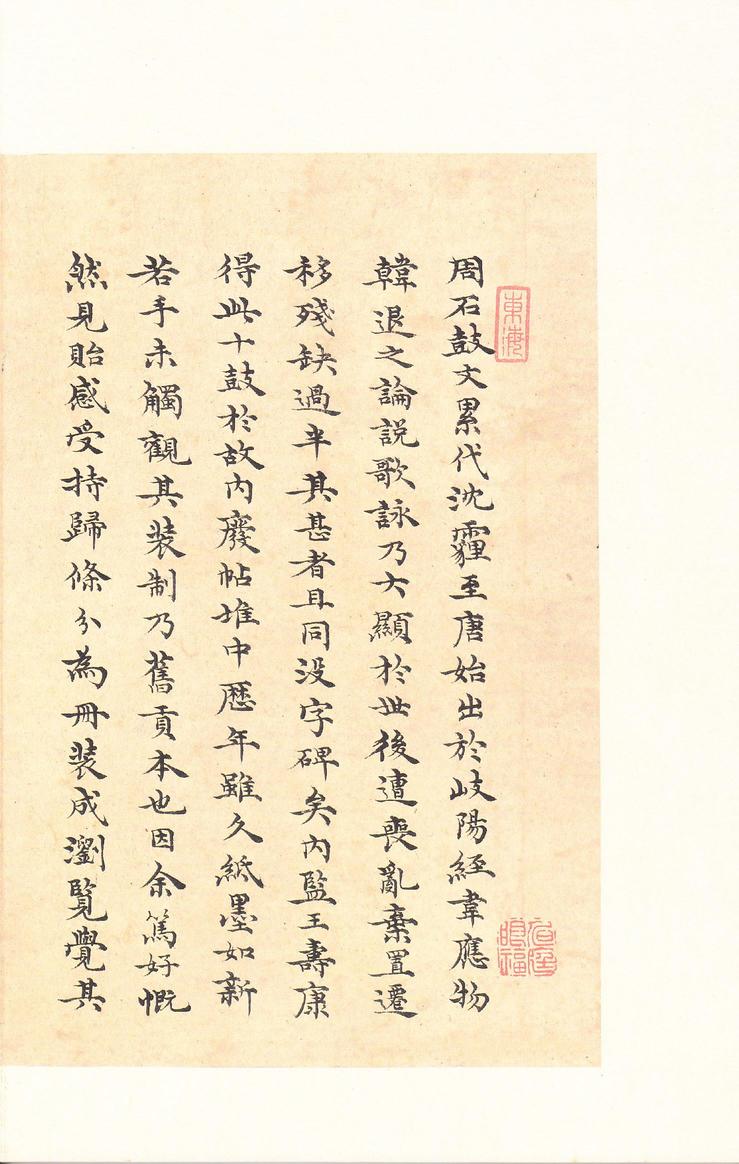 東海
周石鼓文累代沈霾至唐始出於岐陽經韋應物
韓退之論説歌詠乃大顯於世後遭喪亂棄置遷
移殘缺過半其甚者且同没字碑矣内監王壽康
得此十鼓於故内廢帖堆中歷年雖久紙墨如新
若手未觸觀其装制乃舊貢本也因余篤好慨
然見貽感受持歸條分為冊装成瀏覽覺其